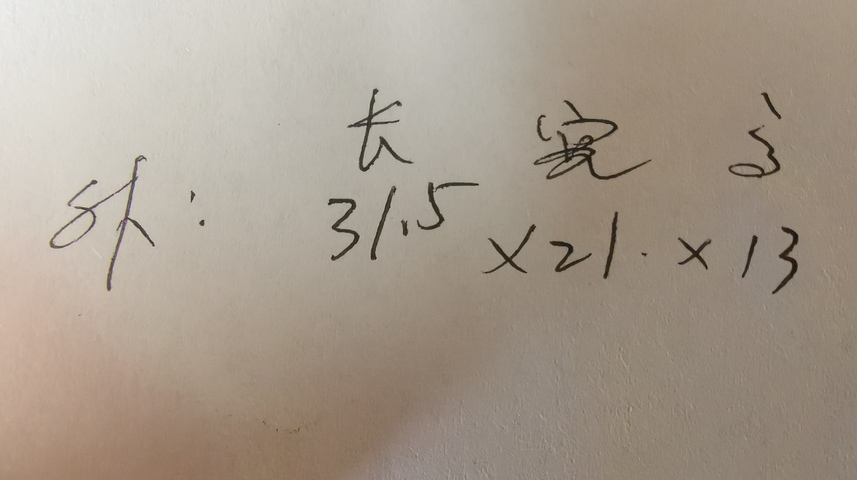 长 宽 高
外: 31.5 ×21. × 13